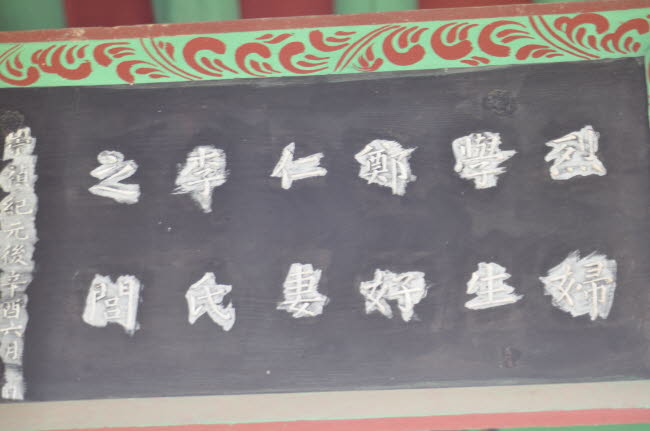 烈婦
學生
鄭好
仁妻
李氏
之閭
崇禎紀元後辛酉六月 日